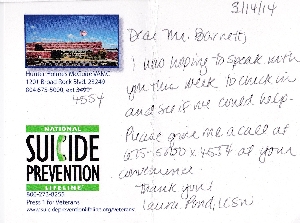 3/14/14
Dear Mr. Barnett,
I was hoping to speak with
you this week to check in
and see if we could help.
Please give me a call at
675-5000 x 4554 at your
convenience.
Thank you!
Laura
Hunter Holmes McGuire VAMC
1201 Broad Rock Blvd, 23249
804-675-5000, ext
4554
NATIONAL
SUICIDE
PREVENTION
LIFELINE
800-273-8255
Press 1 for Veterans
www.suicidepreventionlifeline.org/veterans